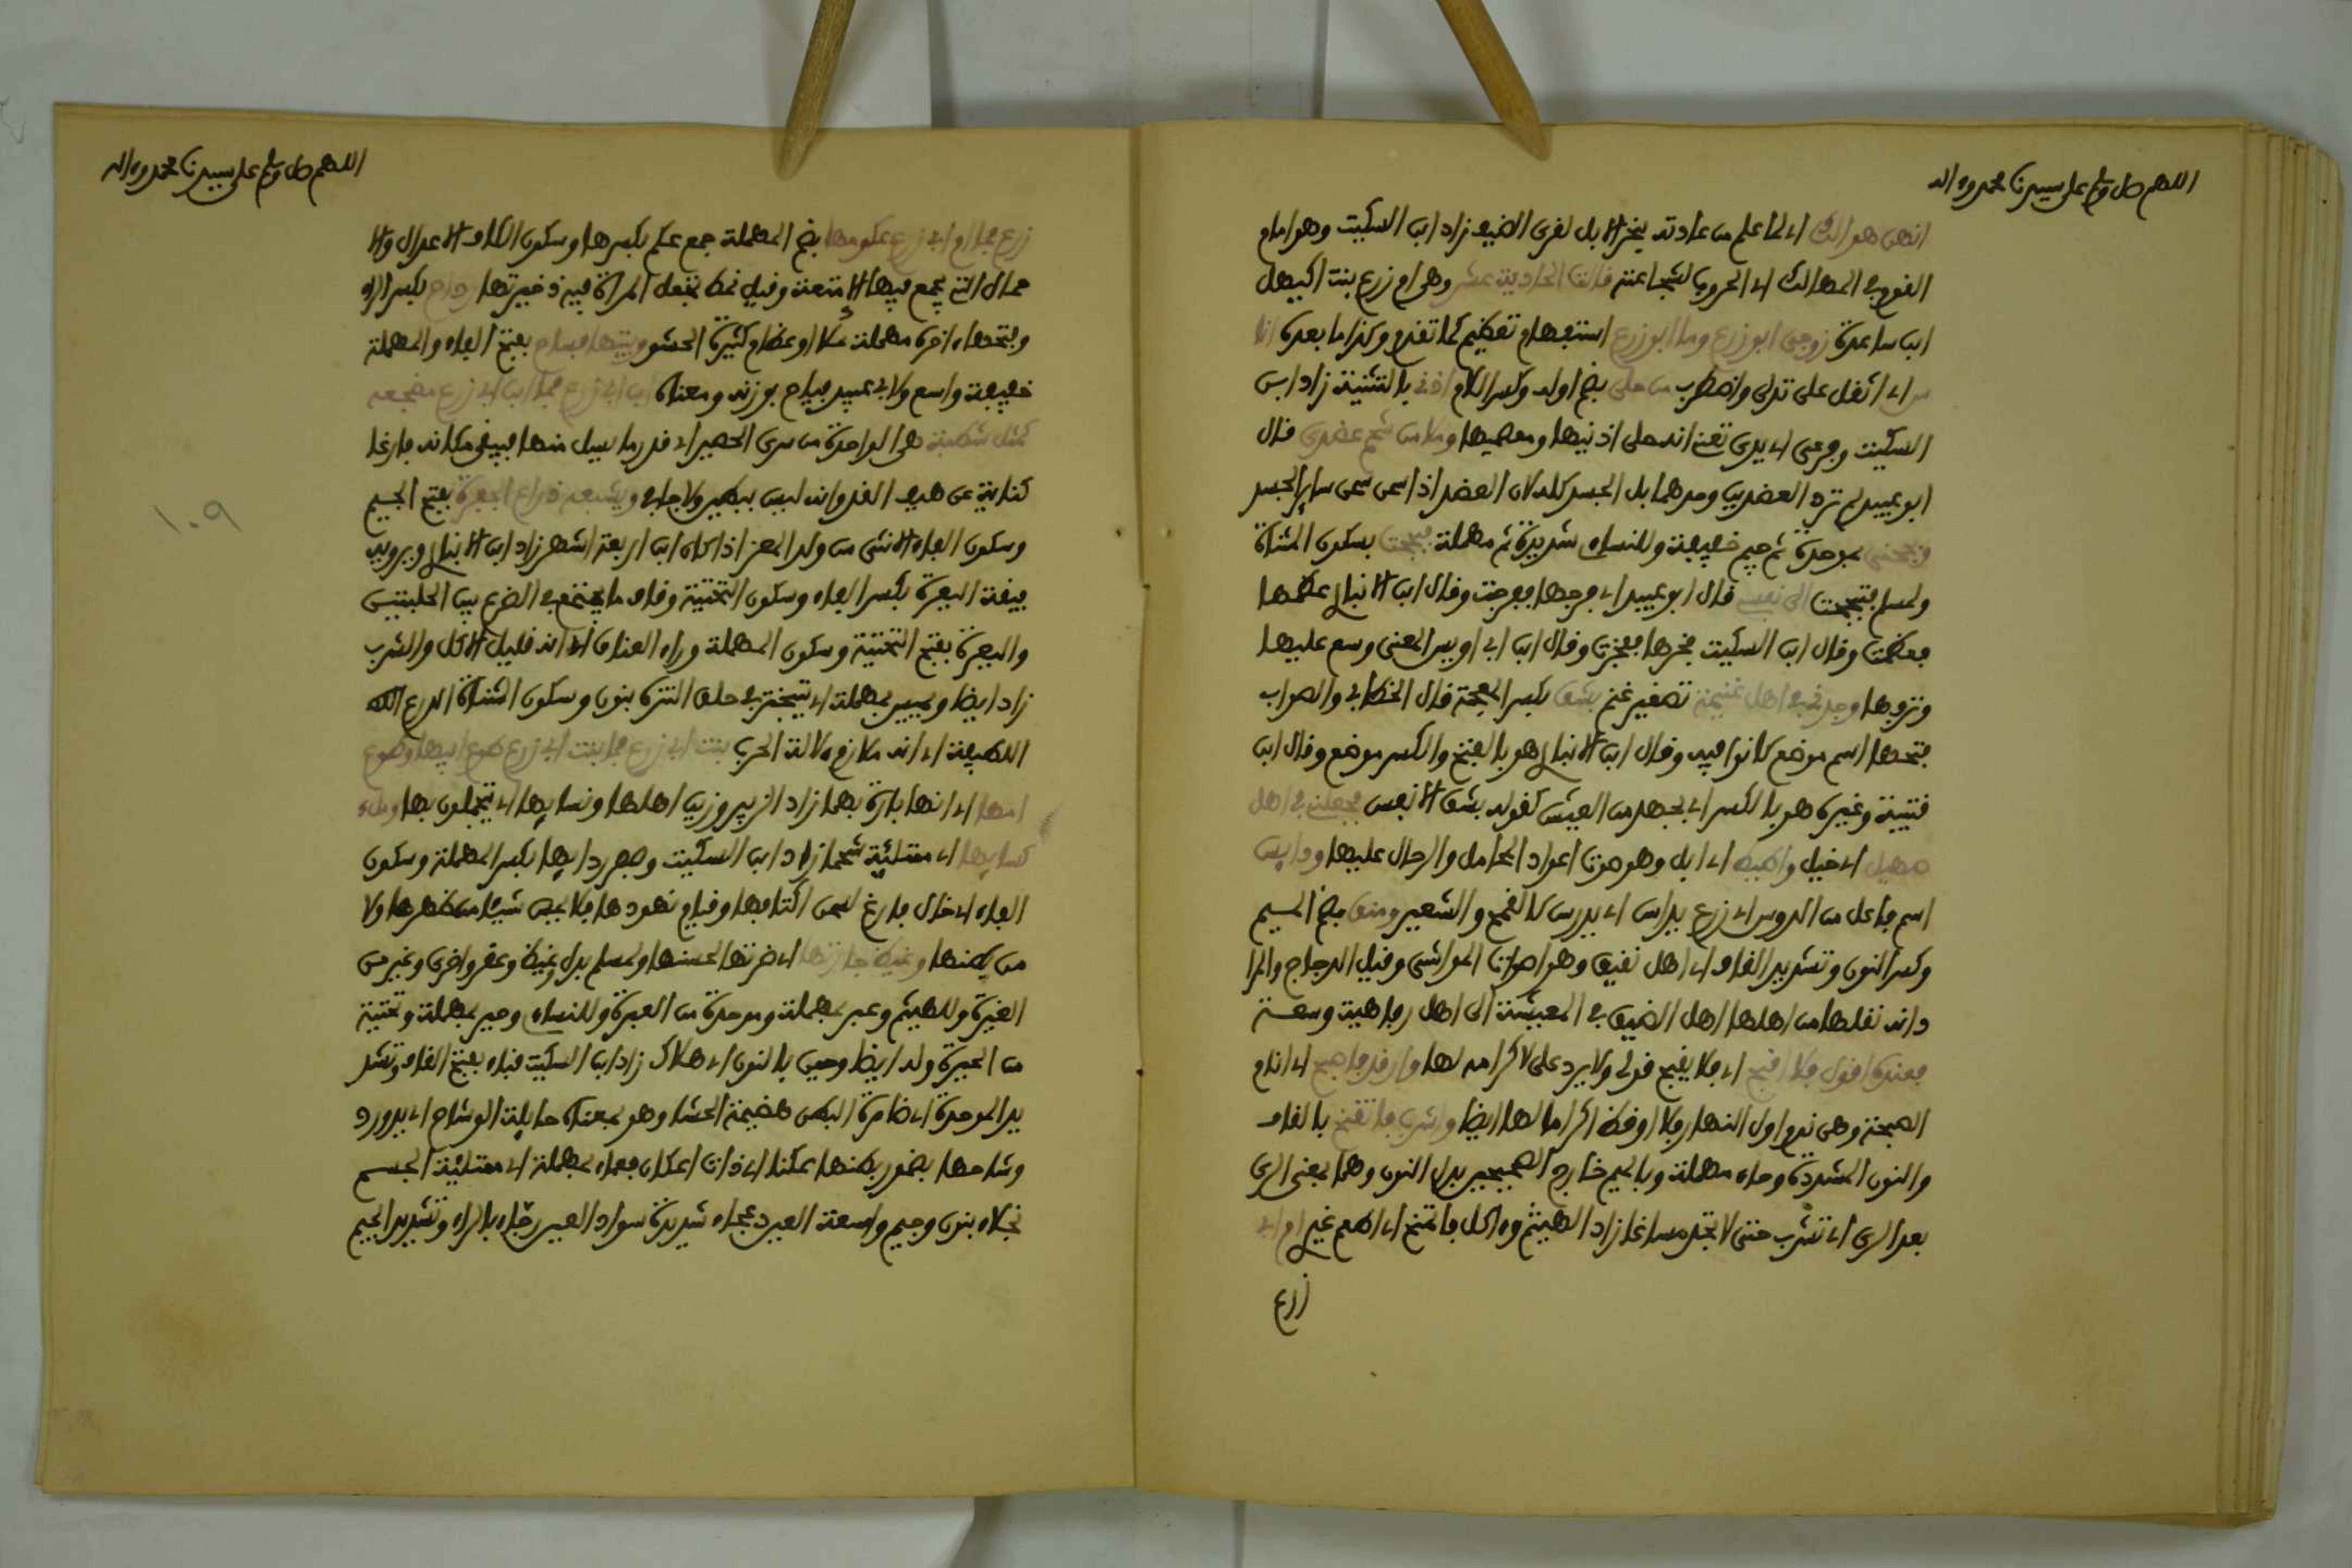 اللهم صل وسلم على سيدنا محمد وءاله
انهن هوالك اى لما علم من عادته بنحر الابل لقرى الضيف زاد ابن السكيت وهو امام
القوم في المهالك اى الحروب لشجاعته قالت الحادية عشر وهي ام زرع بنت اكيهل
ابن ساعدة زوجي ابو زرع وما ابو زرع استفهام تعظيم كما تقدم وكذا ما بعده اناس
اى اثقل على تدلى واضطرب من حلي بضم اوله وكسر اللام اذني بالتثنية زاد ابن
السكيت وفرعي اى يدي تعني انه حلى اذنيها ومعصميها وملا من شحم عضدي قال
ابو عبيد لم ترد العضدين وحدهما بل الجسد كله لان العضد اذا سمن سمن سائر الجسد
وبجحني بموحدة ثم جيم خفيفة وللنساء شديدة ثم مهملة فبجحت بسكون المثناة
ولمسلم فتبجحت الى نفسي قال ابو عبيد اى فرحها ففرحت وقال ابن الانباري عظمها
فعظمت وقال ابن السكيت فخرها ففخرت وقال ابن ابي اويس المعنى وسع عليها
وترفها وجدني في اهل غنيمة تصغير غنم بشق بكسر المعجمة قال الخطابي والصواب
فتحها اسم موضع كانوا فيه وقال ابن الانباري هو بالفتح والكسر موضع وقال ابن
قتيبة وغيره هو بالكسر اى بجهد من العيش كقوله بشق الانفس فجعلني في اهل
صهيل اى خيل واطيط اى ابل وهو صوت اعواد المحامل والرحال عليها ودايس
اسم فاعل من الدوس اى زرع يداس اى يدرس كالقمح والشعير ومنق بضم الميم
وكسر النون وتشديد القاف اى اهل نقيق وهو اصوات المواشي وقيل الدجاج والمرا
د انه نقلها من اهلها اهل الضيق في المعيشة الى اهل رفاهية وسعة
فعنده اقول فلا اقبح اى فلا يقبح قولي ولا يرد على لاكرامه لها وارقد فاصبح اى انام
الصبحة وهي نوم اول النهار فلا اوقظ اكراما لها ايضا واشرب فاتقنح بالقاف
والنون المشددة وحاء مهملة وبالميم خارج الصحيحين بدل النون وهما بمعنى الري
بعد الري اى تشرب حتى لا تجد مساغا زاد الهيثم وءاكل فاتمنح اى اطعم غيري ام ابي
زرع
اللهم صل وسلم على سيدنا محمد وءاله
زرع فما ام ابي زرع عكومها بضم المهملة جمع عكم بكسرها وسكون الكاف الاعدال والا
حمال التي يجمع فيها الامتعة وقيل نمط تجعل المراة فيه ذخيرتها رداح بكسر الراء
وفتحها ءاخره مهملة ملا او عظام كثيرة الحشو وبيتها فساح بفتح الفاء والمهملة
خفيفة واسع ولابي عبيد فياح بوزنه ومعناه ابن ابي زرع فما ابن ابي زرع مضجعه
كمثل شطبة هي الواحدة من سدى الحصير اى قدر ما يسل منها فيبقى مكانه فارغا
كناية عن هيف القد وانه ليس ببطين ولا جاف ويشبعه ذراع الجفرة بفتح الجيم
وسكون الفاء الانثى من ولد المعز اذا كان ابن اربعة اشهر زاد ابن الانباري وترويه
فيقة اليعرة بكسر الفاء وسكون التحتية وقاف ما يجتمع في الضرع بين الحلبتين
واليعرة بفتح التحتية وسكون المهملة وراء العناق اى انه قليل الاكل والشرب
زاد ايضا ويميس بمهملة اى يتبختر في حلق النثرة بنون وسكون المثناة الدرع
اللطيفة اى انه ملازم ءالة الحرب بنت ابي زرع فما بنت ابي زرع طوع ابيها وطوع
امها اى انها بارة بهما زاد الزبير وزين اهلها ونسايها اى يتجملون بها وملء
كسايها اى ممتلئة شحما زاد ابن السكيت وصفر ردايها بكسر المهملة وسكون
الفاء اى خال فارغ لسمن اكتافها وقيام نهودها فلا يمس شيئا من ظهرها ولا
من بطنها وغيظ جارتها اى ضرتها لحسنها ولمسلم بدل وغيظ وعقر واخرى وغير من
الغيرة وللهيثم وعبر بمهملة وموحدة من العبرة وللنساء وحير بمهملة وتحتية
من الحيرة وله ايضا وحين بالنون اى هلاك زاد ابن السكيت قباء بفتح القاف وتشد
يد الموحدة اى ضامرة البطن هضيمة الحشا وهو بمعناه جايلة الوشاح اى يدور
وشاحها بضمور بطنها عكنا اى ذات اعكان فعماء بمهملة اى ممتلئة الجسم
نجلاء بنون وجيم واسعة العين دعجاء شديدة سواد العين رجاء بالراء وتشديد الجيم
١٠٩